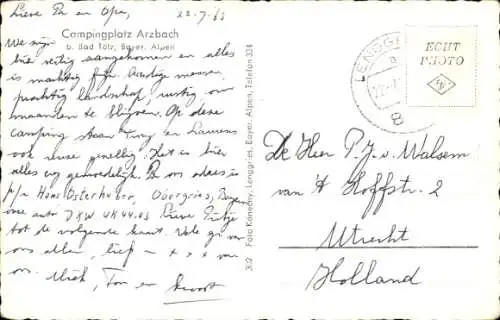 Lieve Pa en Opa, 22.7.63
Campingplatz Arzbach
b. Bad Tölz, Bayer. Alpen
We zijn
hier veilig aangekomen en alles
is machtig fijn. Aardige mensen,
prachtig landschap, rustig om
maanden te blijven. Op deze
camping staan Tiny en Laurens
ook reuze gezellig. Het is hier
alles erg gemoedelijk. Ons adres is
p/a Hans Osterhuber, Obergries, Bayern
onze auto DKW UK 44.03 Lieve
tot de volgende kaart. Vele gr. van
ons allen, lief - x x x van
ons. Miek, Ton en kroost
302 Foto Könecny, Lenggries, Bayer. Alpen, Telefon 334
LENGGR
22.7
8
ECHT
PHOTO
De Heer P. J. v. Walsem
van 't Hoffstr. 2
Utrecht
Holland